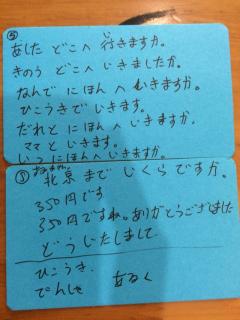 ⑤
あした どこへ 行きますか。
きのう どこへ いきましたか。
なんで にほんへ いきますか。
ひこうきで いきます。
だれと にほんへ いきますか。
ママと いきます。
いつ にほんへ いきますか。
③
すみません
北京まで いくらですか。
350円です
350円ですね。ありがとうございました
どういたしまして
ひこうき.
でんしゃ あるく